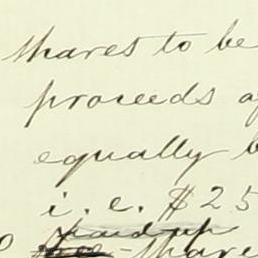 shares to be
proceeds
equally b
i. e. $25
paid up
share